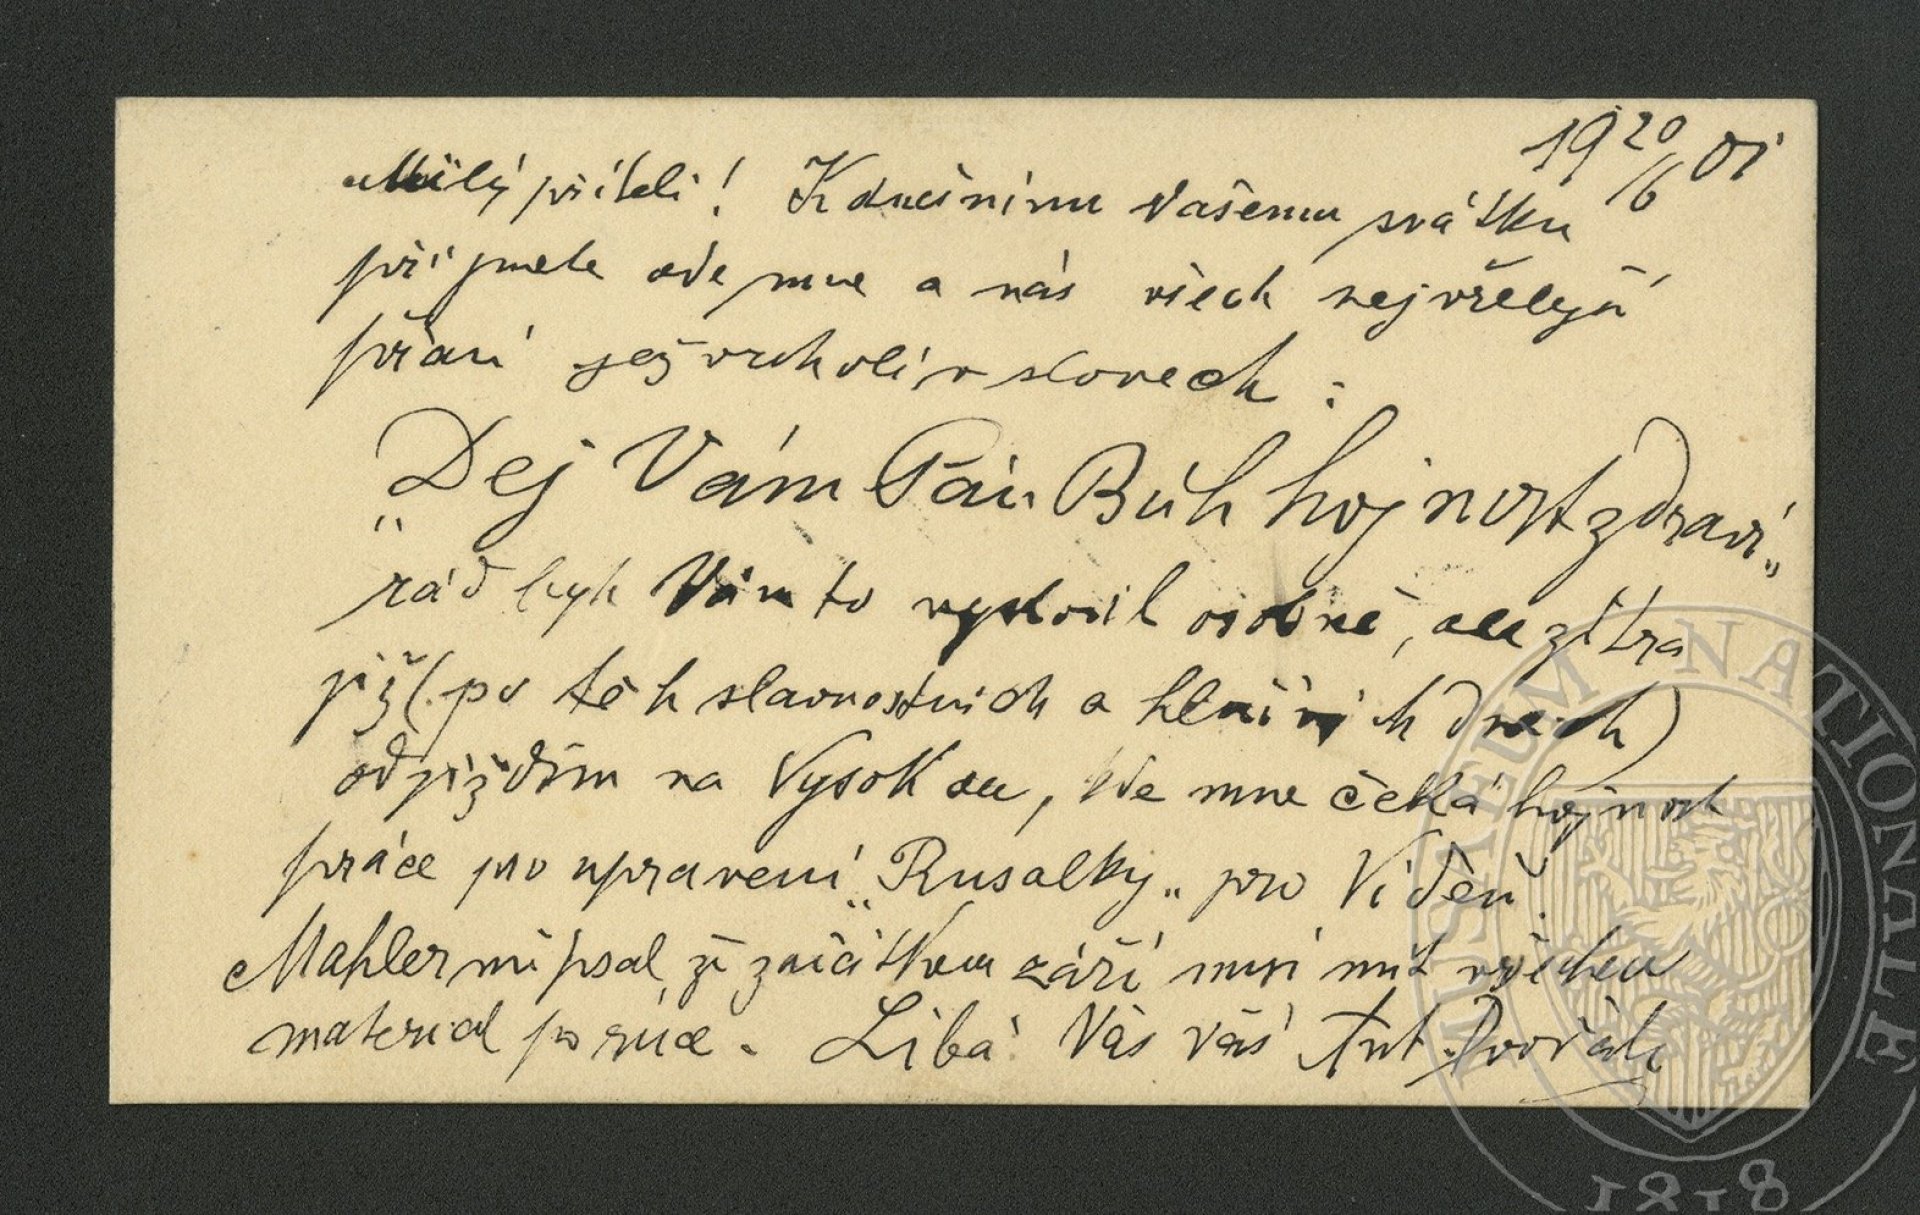 19 20/6 01
Milý příteli! K dnešnímu Vašemu svátku
přijmete ode mne a nás všech nejvřelejší
přání jež vrcholí v slovech:
„Dej Vám Pán Bůh hojnost zdraví„
rád bych Vám to vyslovil osobně, ale zítra
již (po těch slavnostních a hlučních dnech)
odjíždím na Vysokou, kde mne čeká hojnost
práce pro upravení „Rusalky„ pro Vídeň.
Mahler mi psal, že začátkem září musí mít všechen
material po ruce. Líbá Vás váš Ant Dvořák
MUSAEUM NATIONALE
1818